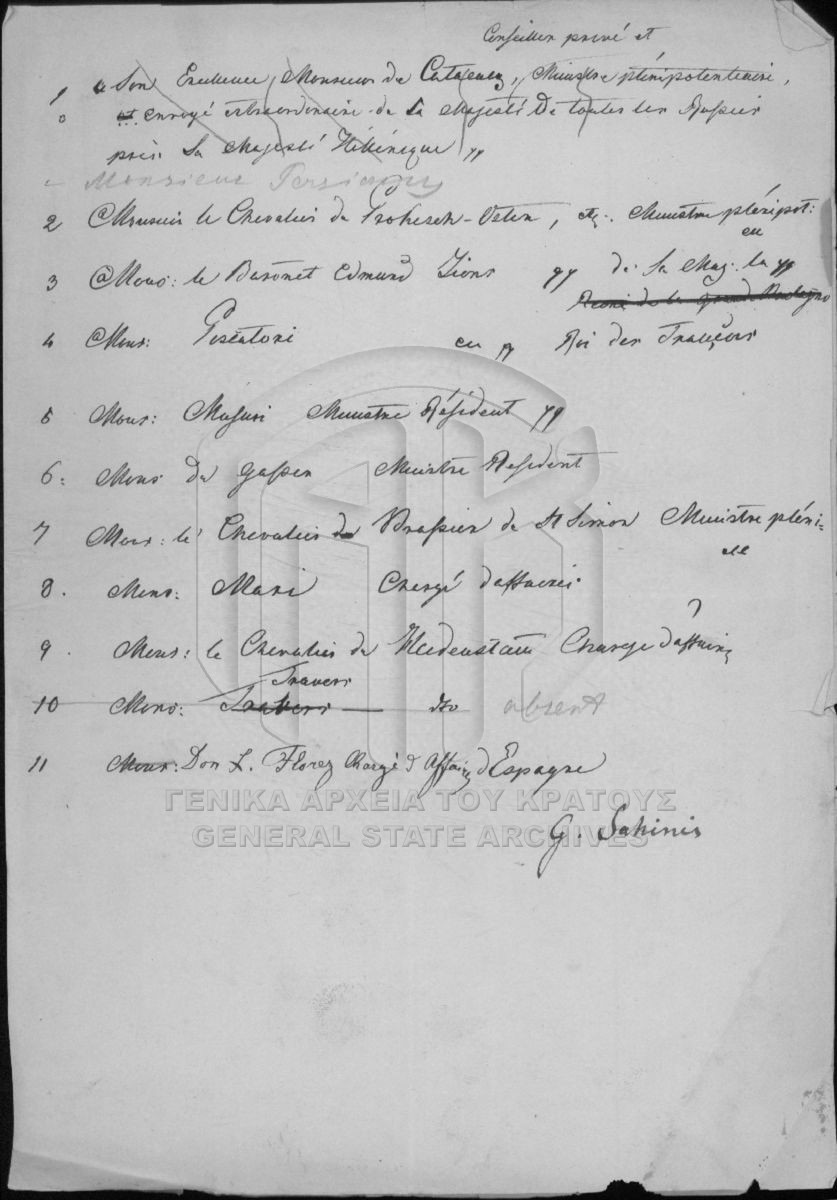 Conseiller privé et
1 à Son Excellence, Monsieur de Catacazy, Ministre plénipotentiaire,
0 et envoyé extraordinaire de Sa Majesté de toutes les Russies
près Sa Majesté Hellénique
Monsieur Persiany
2 à Monsieur le Chevalier de Prokesch-Osten, etc. Ministre plénipot:
en
3 à Mons: le Baronet Edmund Lions de Sa Maj. la
Reine de la Grande Bretagne
4 Mons: Piscatori en Roi des Français
5 Mons: Musuri Ministre Résident
6: Mons de Gasser Ministre Resident
7 Mons: le Chevalier de Brassier de St Simon Ministre pléni-
8. Mons: Mari Chargé d'affaires
9. Mons: le Chevalier de Heidenstam Charge d'affaires
Travers
10 Mons: Travers — do absent
11 Mons: Don L. Florez Chargé d'Affaires d'Espagne
G. Sahinis
ΓΕΝΙΚΑ ΑΡΧΕΙΑ ΤΟΥ ΚΡΑΤΟΥΣ
GENERAL STATE ARCHIVES